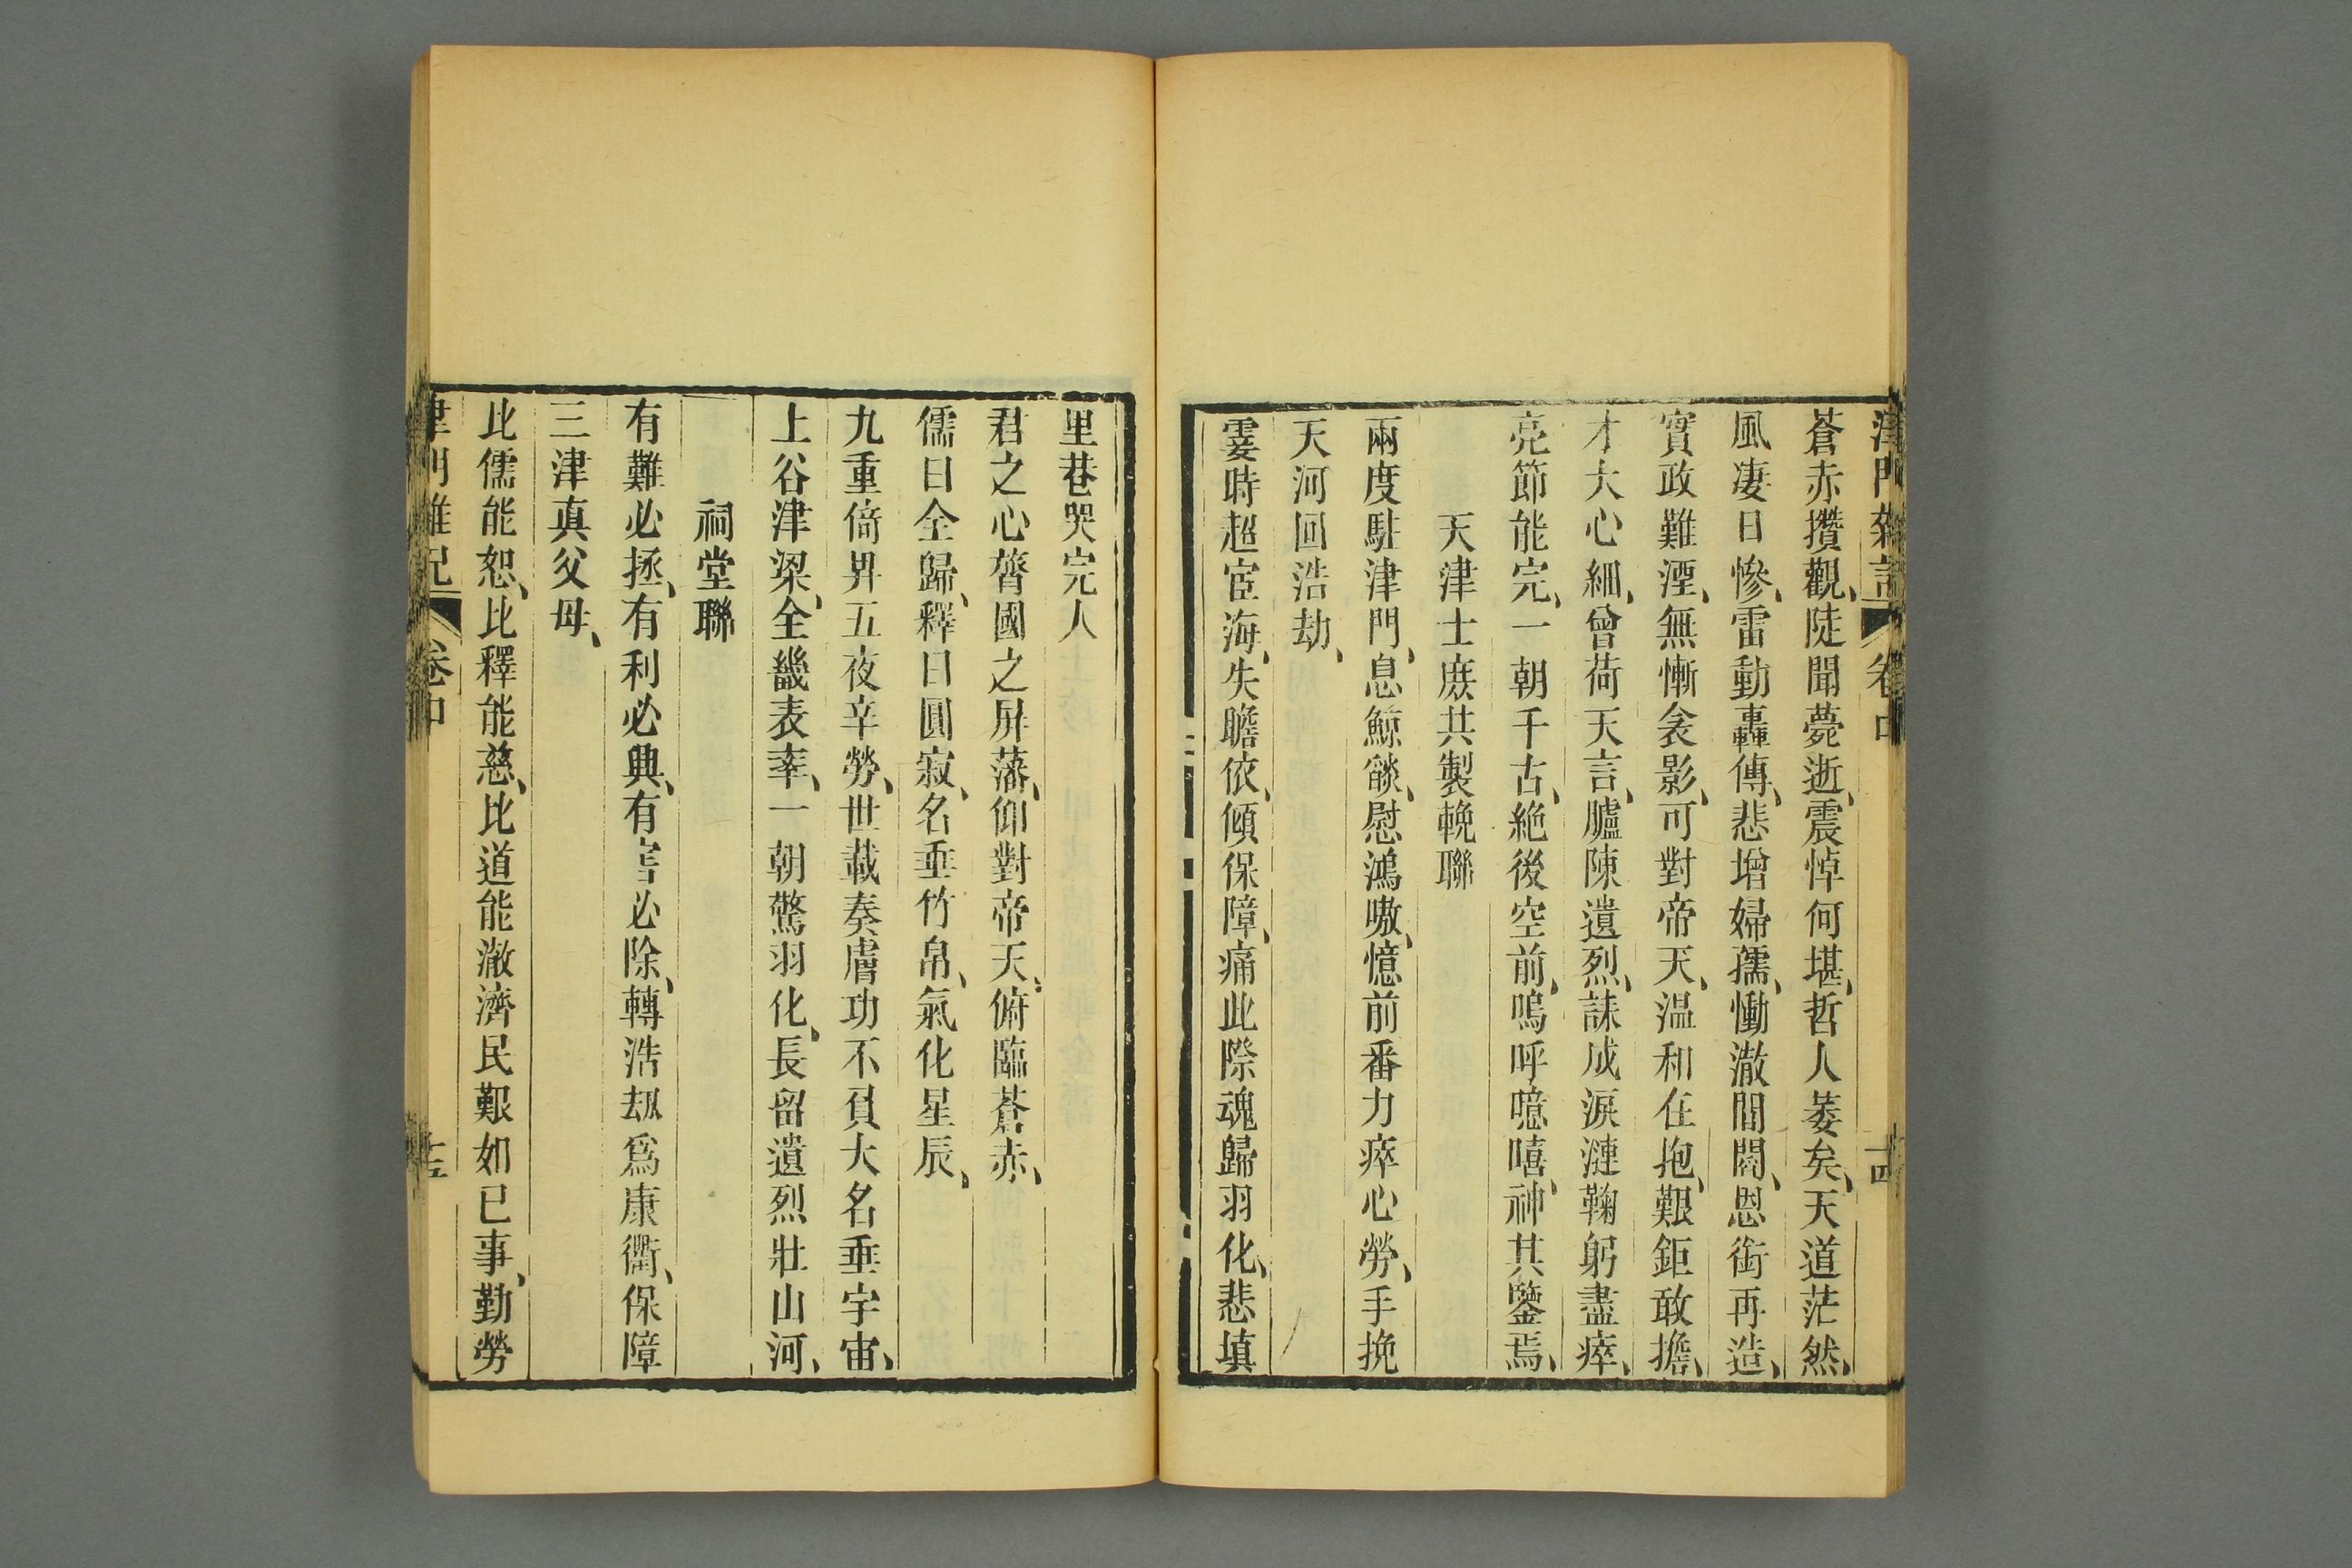 津門雜記 卷中 十四
蒼赤攢觀、陡聞薨逝、震悼何堪、哲人萎矣、天道茫然、
風凄日慘、雷動轟傳、悲增婦孺、慟澈閭閻、恩銜再造、
實政難湮、無慚衾影、可對帝天、温和在抱、艱鉅敢擔、
才大心細、曾荷天言、臚陳遺烈、誄成淚漣、鞠躬盡瘁、
亮節能完、一朝千古、絶後空前、嗚呼噫嘻、神其鑒焉、
天津士庶共製輓聯
兩度駐津門、息鯨燄、慰鴻嗷、憶前番力瘁心勞、手挽
天河回浩劫、
霎時超宦海、失瞻依、傾保障、痛此際魂歸羽化、悲填
里巷哭完人
君之心膂國之屏藩、仰對帝天、俯臨蒼赤、
儒曰全歸、釋曰圓寂、名垂竹帛、氣化星辰、
九重倚畀五夜辛勞、世載奏膚功不負大名垂宇宙、
上谷津梁、全畿表率、一朝驚羽化、長留遺烈壯山河、
祠堂聯
有難必拯、有利必興、有害必除、轉浩刼爲康衢、保障
三津真父母、
比儒能恕、比釋能慈、比道能澈濟民艱如已事、勤勞
津門雜記 卷中 十五